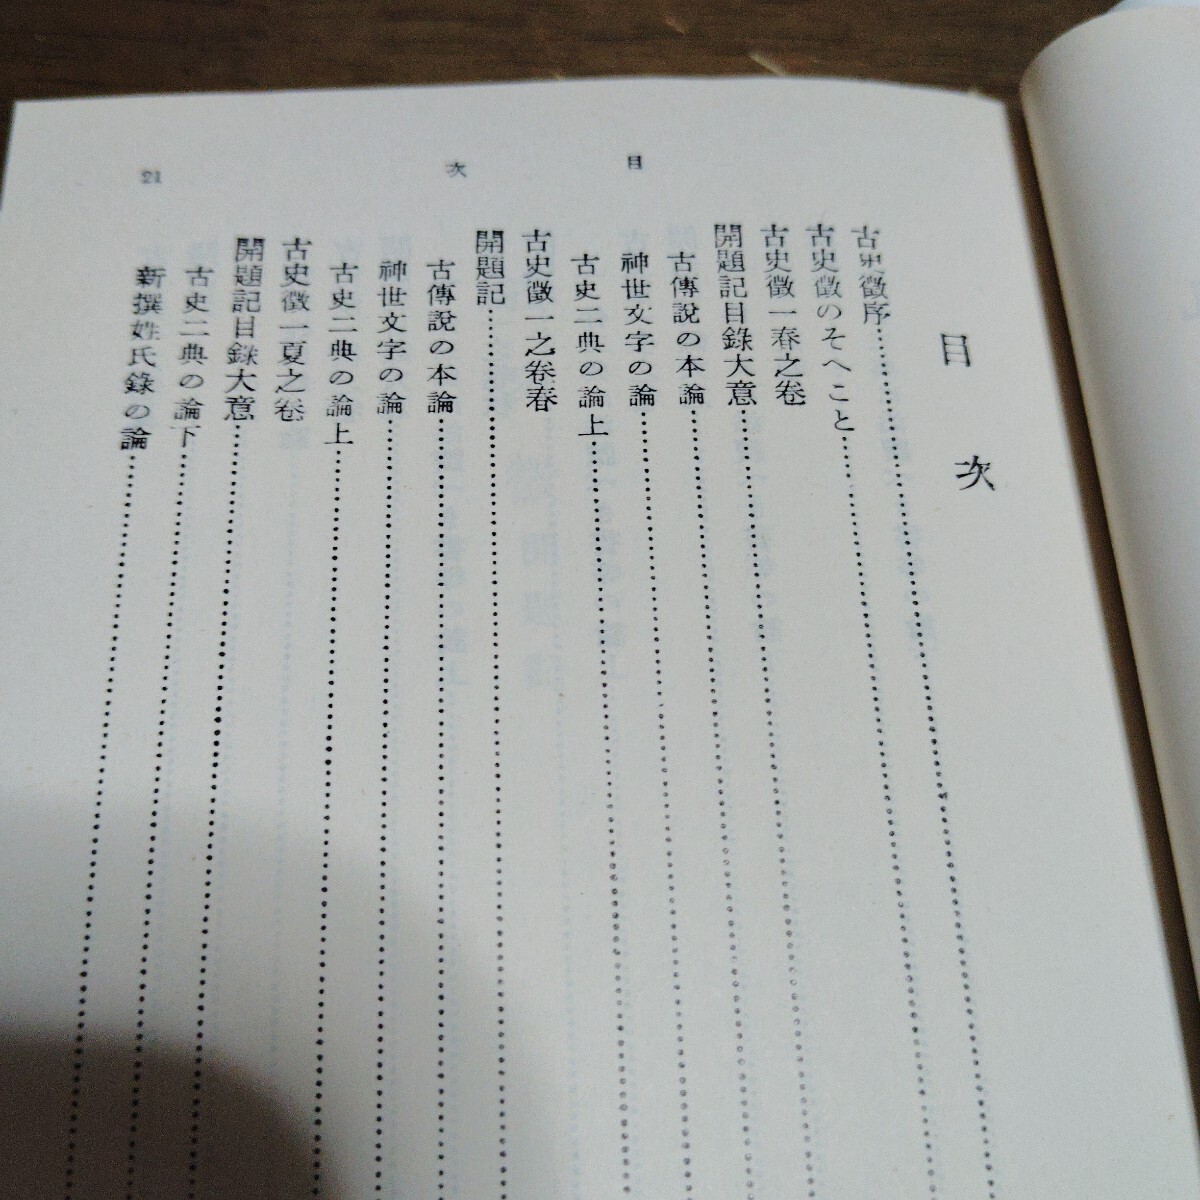 目次
古史徴序
古史徴のそへこと
古史徴一春之卷
開題記目錄大意
古傳說の本論
神世文字の論
古史二典の論上
古史徴一之卷春
開題記
古傳說の本論
神世文字の論
古史二典の論上
古史徴一夏之卷
開題記目錄大意
古史二典の論下
新撰姓氏錄の論
目次
21